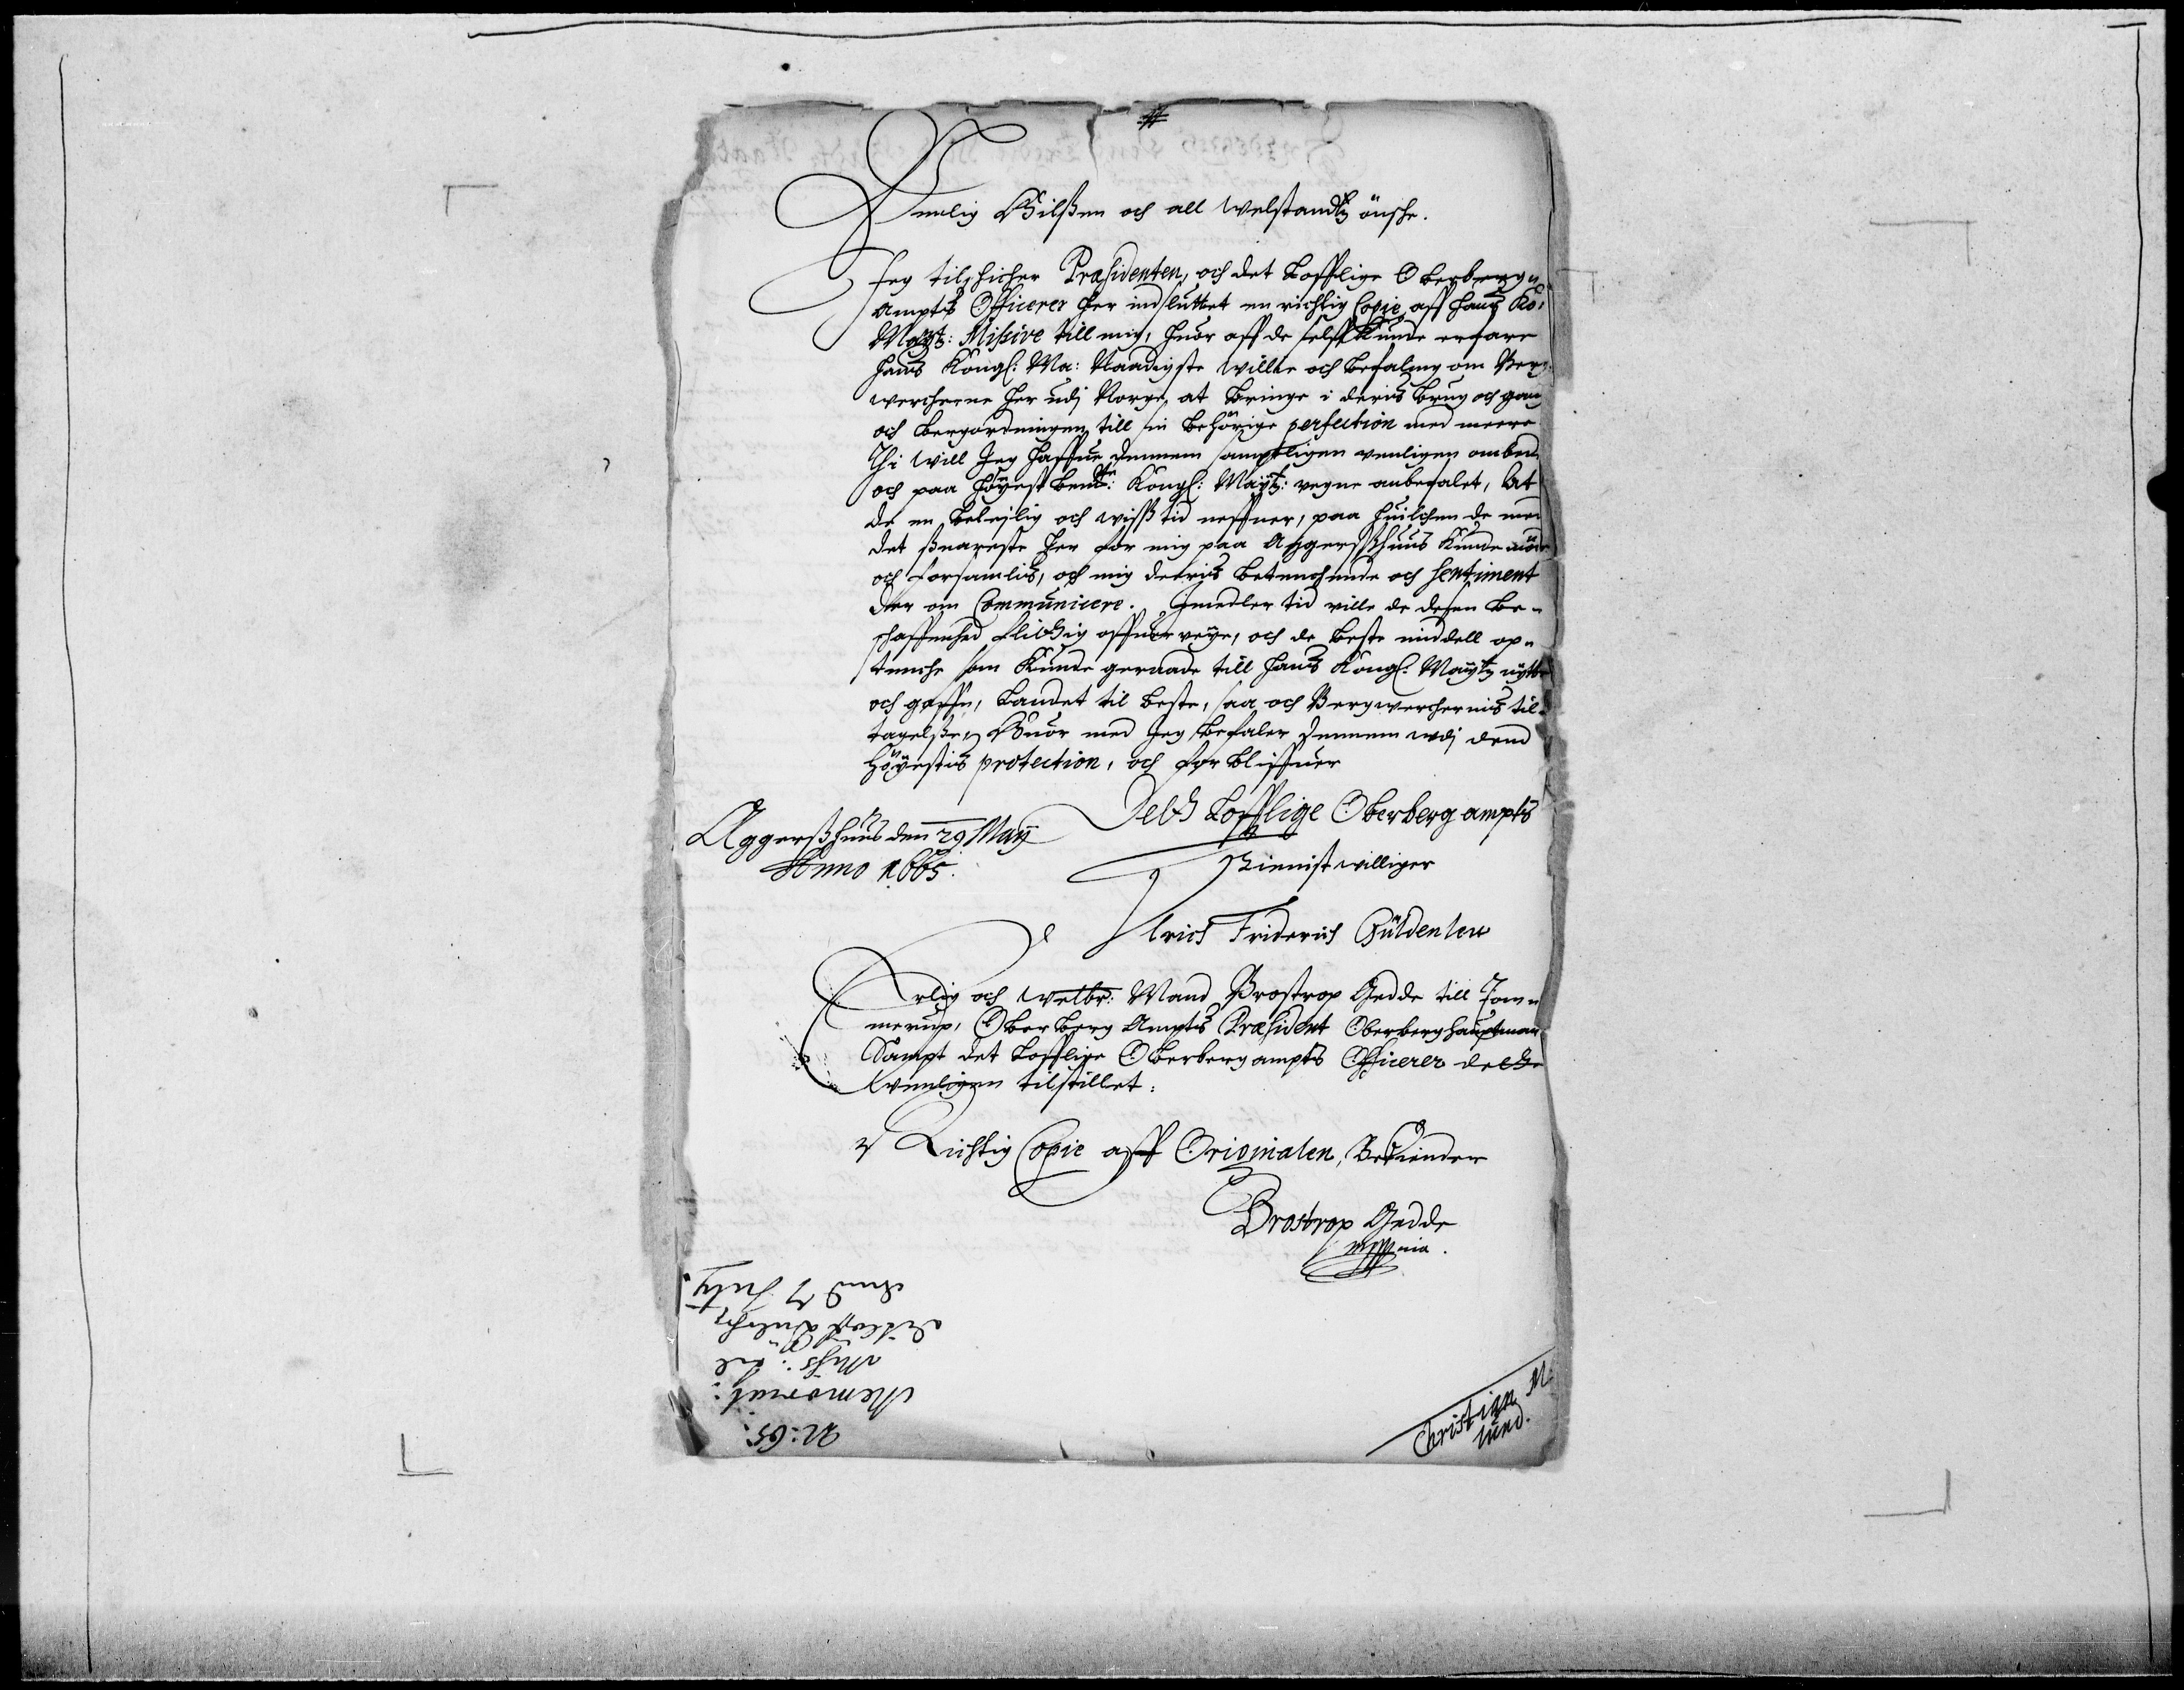 #
Venlig Hilßen och all welstandtz önsche.
Jeg tilschicher Præsidenten, och det Lofflige Oberbergs
ampts Officerer her indsluttet en richtig Copie aff hans Ko:
Maytz: Missive till mig, huor aff de selff kunde erfare
hans Kongl: Ma: Naadigste willie och befaling om Berg
wercherne her udj Norge, at bringe i deris brug och gang
och bergordningen till sin behörige perfection med meere
Thi will Jeg haffue dennem samptligen venligen ombed
och paa höyest bemte: Kongl: Maytz: vegne anbefalet, at
de en beleylig och wiss tid neffner, paa huilchen de med
det snareste her for mig paa Aggerßhuus kunde möde
och forsamlis, och mig deris betenchende och Sentiment
der om Communicere. Imedler tid ville de desen be-
schaffenhed flittig offuerveye, och de beste middell op-
tenche som kunde geraade till hans Kongl: Maytz nytte
och gaffn, Landet til beste, saa och Bergwerchernis til-
tagelße, Huor med Jeg befaler dennem udj dend
Höyestis protection, och for bliffuer
Aggerßhuus den 29 May
Anno 1665.
Dets Lofflige Oberberg ampts
Tienistwilliger
Ulrich Friderich Güldenlew
Erlig och Welbr: Mand Brostrop Gedde till Tom-
merup, Ober Berg Ampts Præsident Oberberghauptman
Sampt det Lofflige Oberberg ampts Officerer dette
venligen tilstillet:
Richtig Copie aff Originalen, Bekiender
Brostrop Gedde
mppria.
N: 65:
Memorial:
dend 7 July
Christian M:
lund.